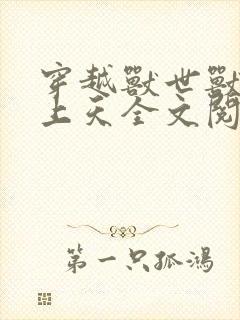 穿越獸世獸
上天全文閱
第一只孤鴻